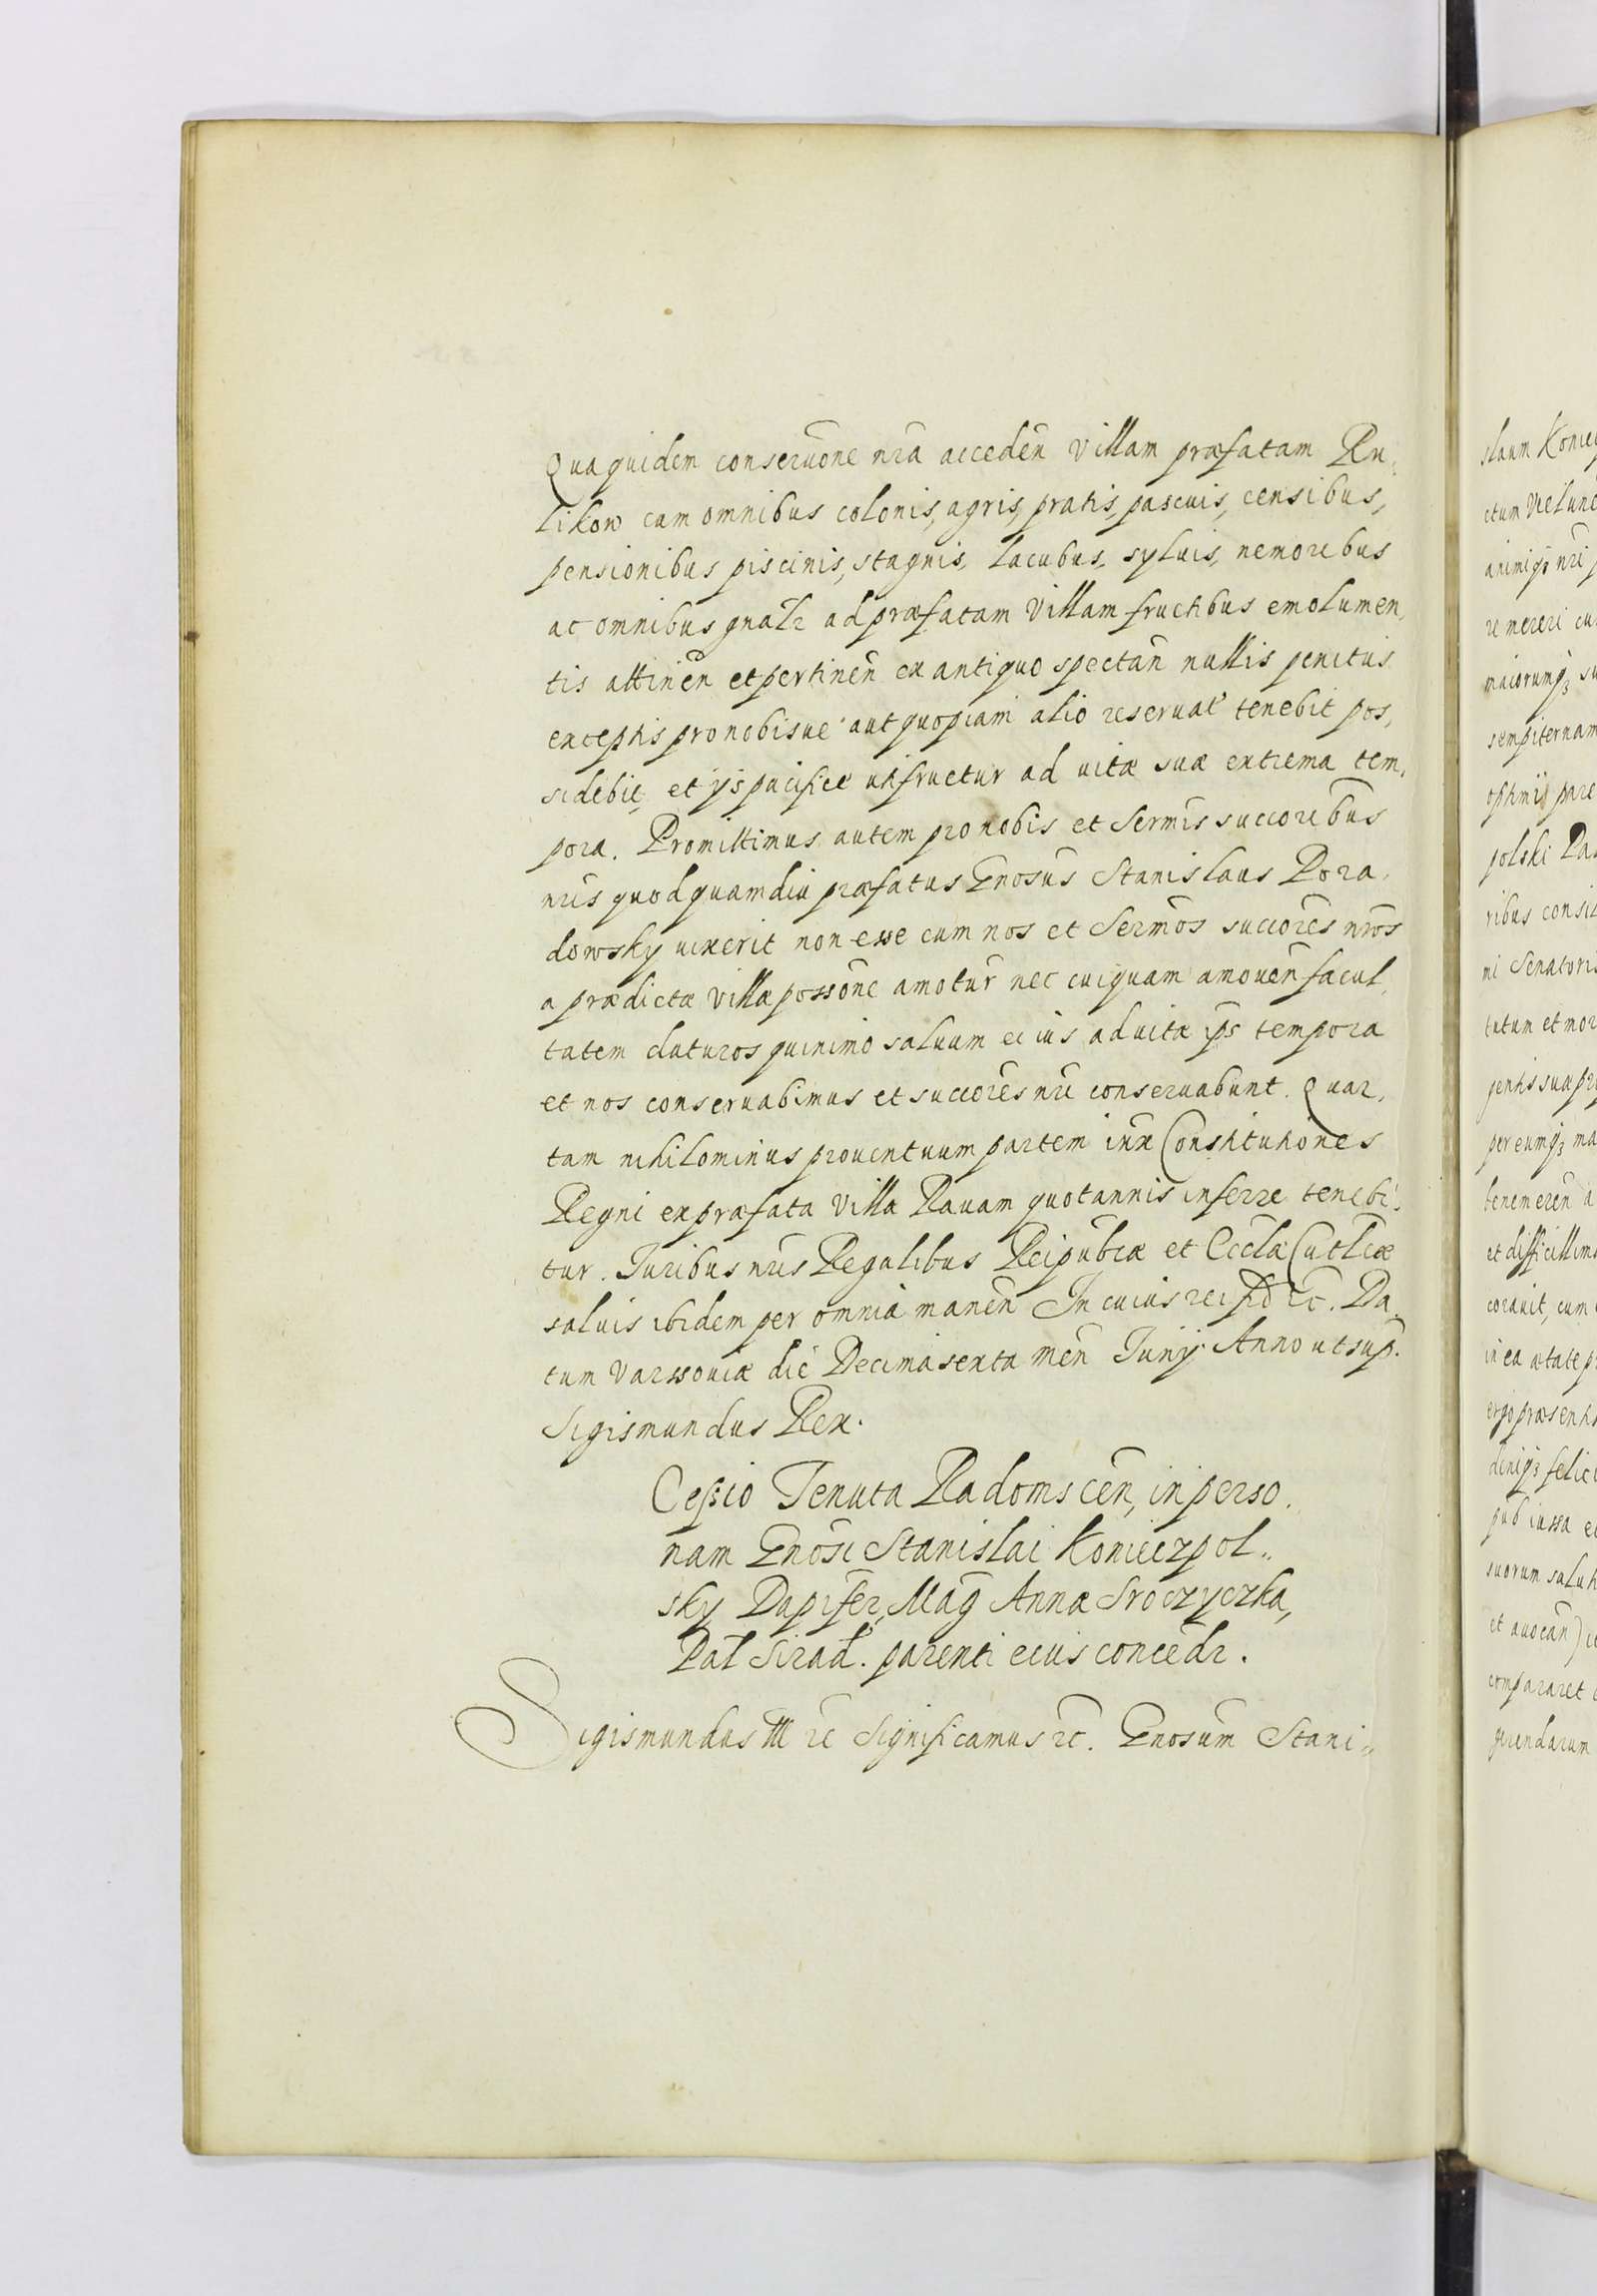 Qua quidem conseruõne nrã accedeñ Villam præfatam Ru,
likow cum omnibus colonis, agris, pratis, pascuis, censibus,
pensionibus piscinis, stagnis, lacubus, syluis, nemoribus
ac omnibus gnãlr ad præfatam Villam fructibus emolumen,
tis attineñ et pertineñ ex antiquo spectañ nullis penitus
exceptis pro nobisue aut quopiam alio reseruat̃ tenebit pos,
sidebit, et ijs pacifice utifruetur ad uitæ suæ extrema tem,
pora. Promittimus autem pro nobis et Sermĩs succoribũs
nrĩs quod quamdiu præfatus Gnosũs Stanislaus Pora,
dowsky uixerit non esse eum nos et Sermõs succorẽs nrõs
a prædictæ Villæ possõne amotur̃ nec cuiquam amoueñ facul,
tatem daturos quinimo saluum ei ius ad uitæ ip̃s tempora
et nos conseruabimus et succorẽs nrĩ conseruabunt. Quar,
tam nihilominus prouentuum partem iux̃ Constitutiones
Regni ex præfata Villa Rauam quotannis inferre tenebi,
tur. Iuribus nrĩs Regalibus Reipubcæ̃ et Ecclæ̃ Catlicæ̃
saluis ibidem per omnia maneñ In cuius rei fid̃ rc̃. Da,
tum Varssouiæ die Decima sexta Meñ Iunij Anno ut sup̃.
Sigismundus Rex.
Cessio Tenuta Radomsceñ, in perso,
nam Gnosĩ Stanislai Koniecpol„
sky Dapifer̃, Mag̃ Annæ Sroczyczka,
Pal̃ Sirad̃. parenti eius concedr̃.
Sigismundus III rc̃ Significamus rc̃. Gnosũm Stani„
slaum Koniec
animiq3 nrĩ
maiorumq3 su
sempiternam
polski Pa
ribus consil
tutum et mor
per eumq3 ma
benemereñ a
et difficillim
corauit, cum
in ea ætate p
ergo præsentis
suorum salut
compararet